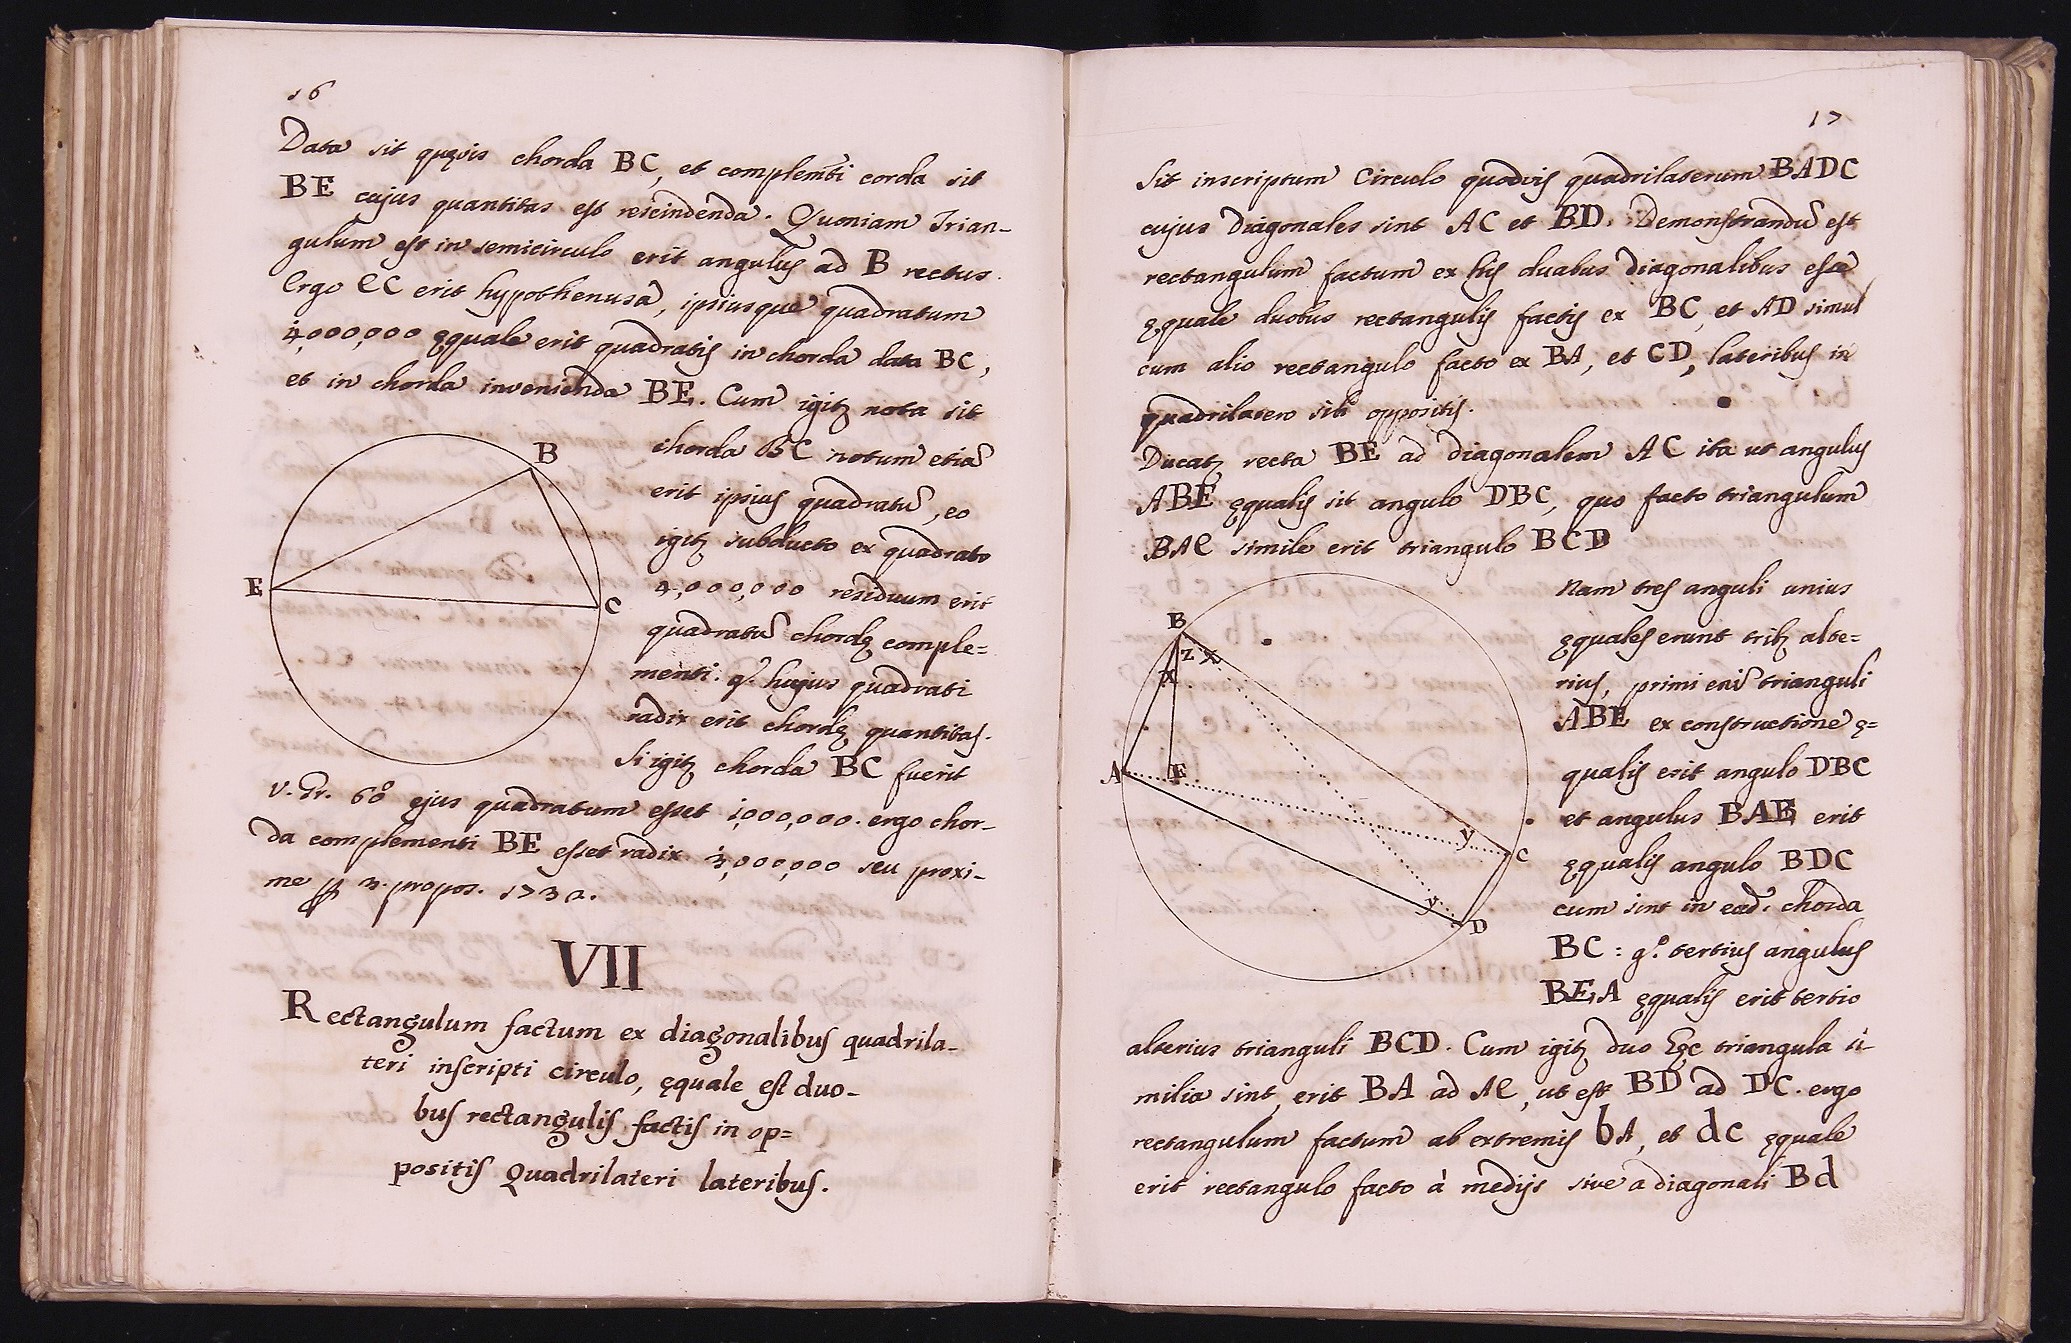 16
Data sit quęvis chorda BC, et complem̃ti corda sit
BE cujus quantitas est rescindenda. Quoniam Trian-
gulum est in semicirculo erit angulus ad B rectus.
Ergo EC erit hypothenusa, ipsiusque quadratum
4,000,000 ęquale erit quadratis in chorda data BC,
et in chorda invenienda BE. Cum igitʒ nota sit
chorda BC notum etiã
erit ipsius quadratũ, eo
igitʒ subducto ex quadrato
4,000,000 residuum erit
quadratũ chordę comple=
menti: qͦ. hujus quadrati
radix erit chordę quantitas.
Si igitʒ chorda BC fuerit
v. Gr. 60 ejus quadratum esset 1,000,000. ergo chor-
da complementi BE esset radix 3,000,000 seu proxi-
me ꝑ 3. propos. 1732.
B
E
C
VII
Rectangulum factum ex diagonalibus quadrila-
teri inscripti circulo, ęquale est duo-
bus rectangulis factis in op=
positis Quadrilateri lateribus.
17
Sit inscriptum Circulo quodvis quadrilaterum BADC
cujus Diagonales sint AC et BD. Demonstrandũ est
rectangulum factum ex his duabus diagonalibus esse
ęquale duobus rectangulis factis ex BC, et AD simul
cum alio rectangulo facto ex BA, et CD, lateribus in
quadrilatero sibi oppositis.
Ducatʒ recta BE ad diagonalem AC ita ut angulus
ABE ęqualis sit angulo DBC, quo facto triangulum
BAE simile erit triangulo BCD
Nam tres anguli unius
ęquales erunt tribʒ alte=
rius, primi enĩ trianguli
ABE ex constructione ę=
qualis erit angulo DBC
et angulus BAE erit
ęqualis angulo BDC
cum sint in eãd. chorda
BC: qͦ. tertius angulus
BEA ęqualis erit tertio
B
z x
x
A
E
y
C
y
D
alterius trianguli BCD. Cum igitʒ duo hęc triangula si-
milia sint, erit BA ad AE, ut est BD ad DC. ergo
rectangulum factum ab extremis bA, et dc ęquale
erit rectangulo facto à medijs sive a diagonali Bd